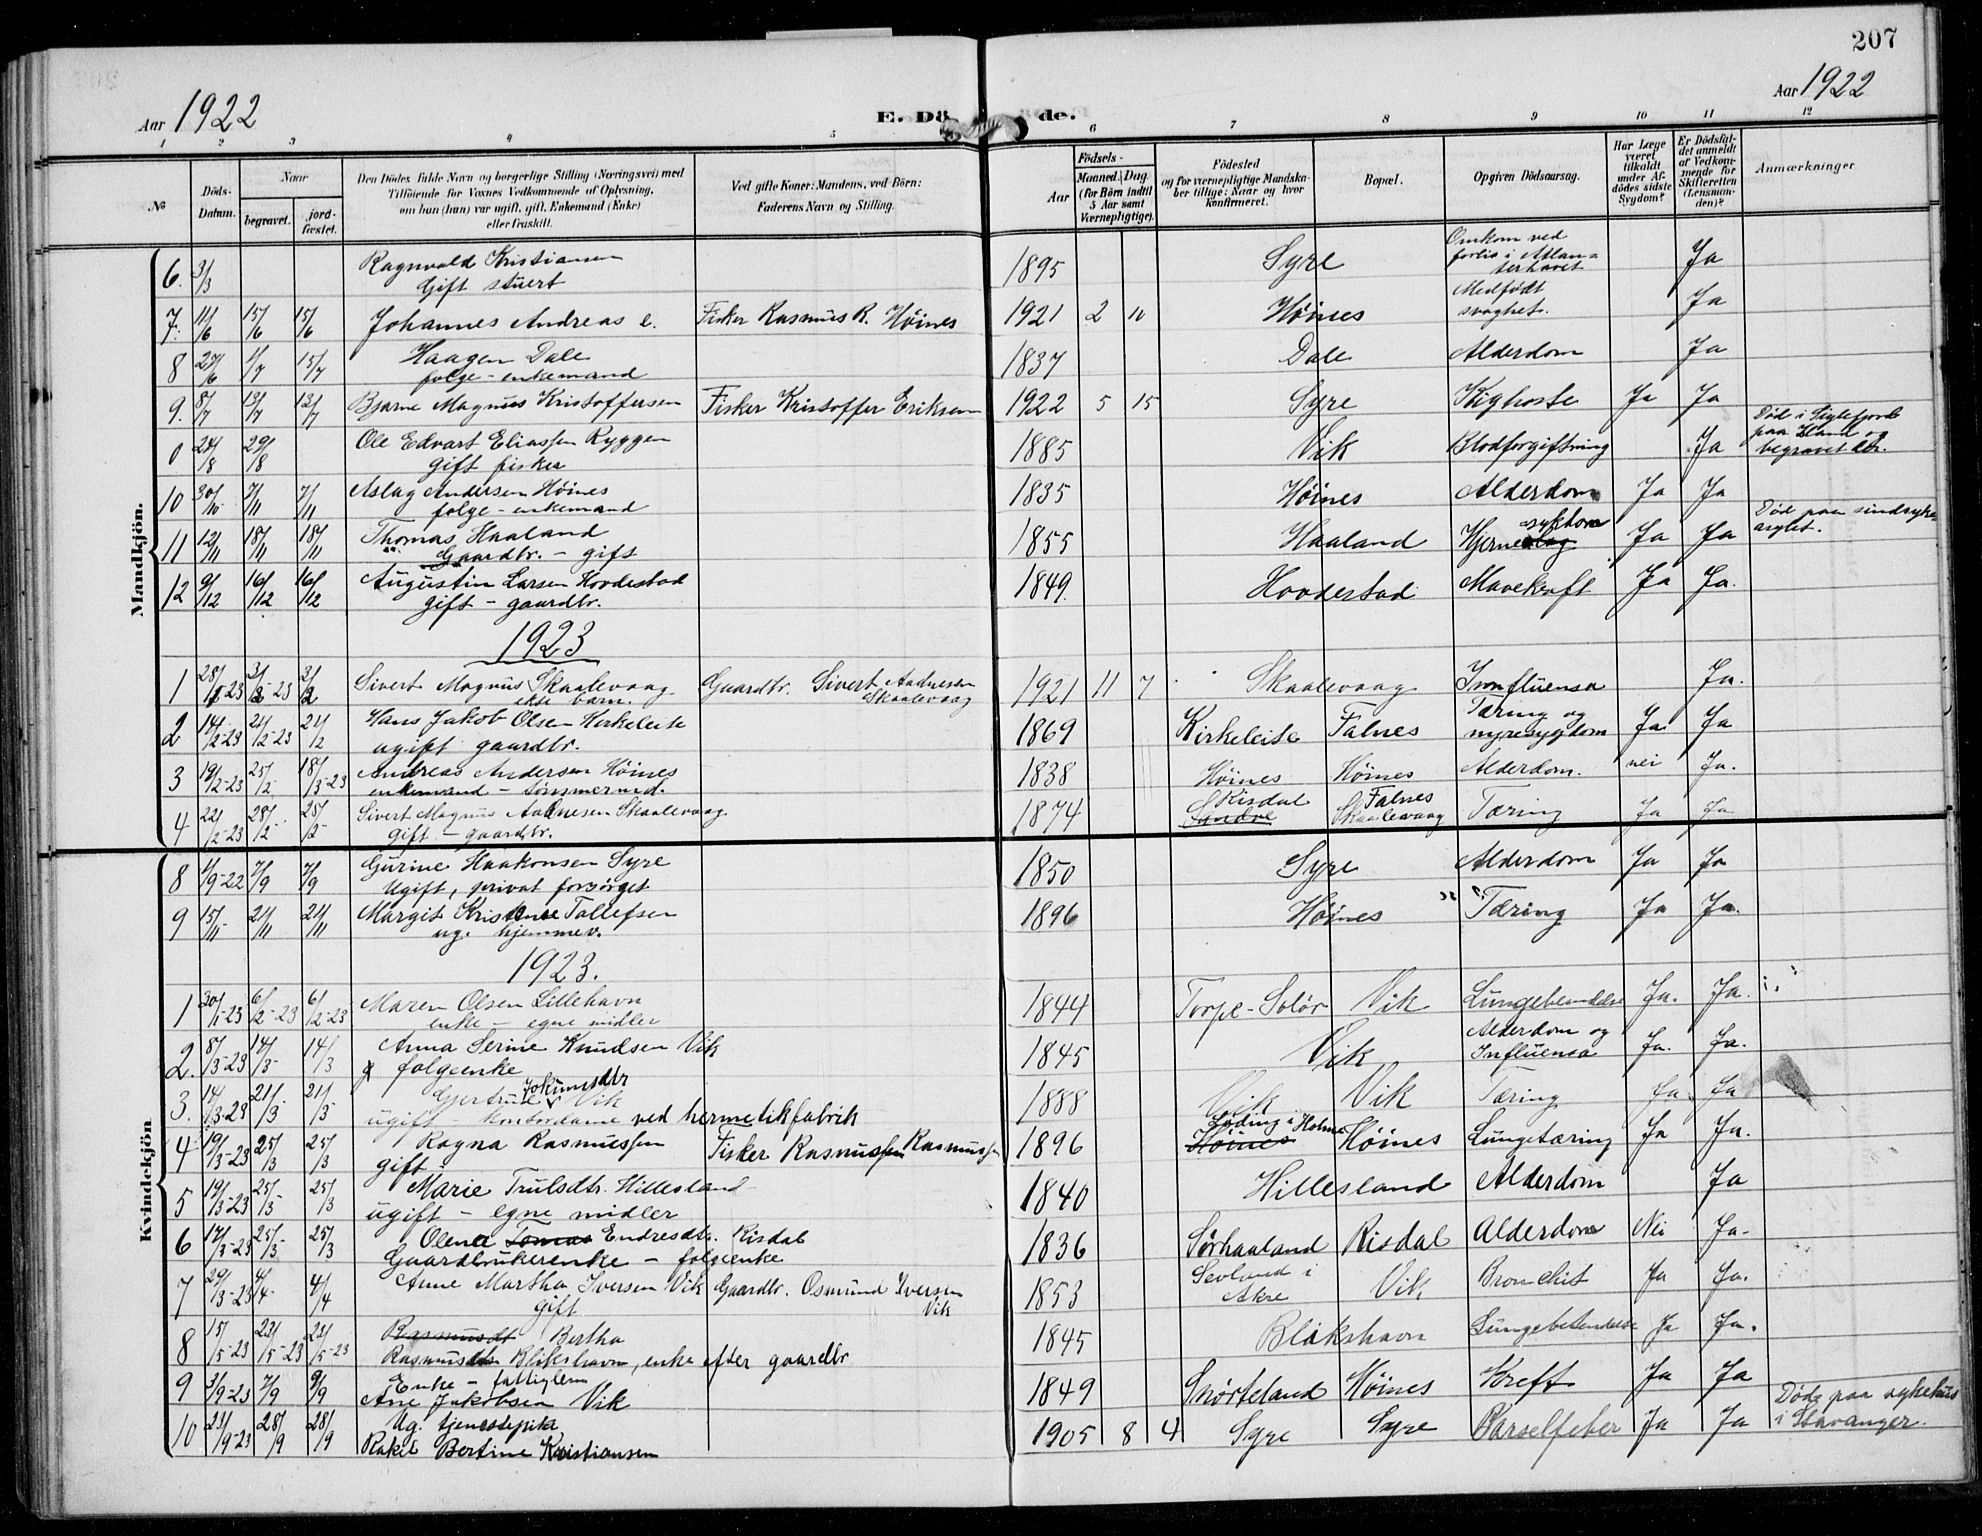 207
Aar 1922
E. Döde.
Aar 1922
1 2 3 4 5 6 7 8 9 10 11 12
No
Döds-Datum.
Naar
begravet.
jord-fæstet.
Den Dödes fulde Navn og borgerlige Stilling (Næringsvei) med
Tilföiende for Voxnes Vedkommende af Oplysning,
om han (hun) var ugift, gift, Enkemand (Enke)
eller fraskilt.
Ved gifte Koner: Mandens, ved Börn:
Faderens Navn og Stilling.
Födsels-
Aar
Maaned. Dag
(for Börn indtil
5 Aar samt
Værnepligtige).
Födested
og for værnepligtige Mandskaber tillige: Naar og hvor
konfirmeret.
Bopæl.
Opgiven Dödsaarsag.
Har Læge været tilkaldt under Afdödes sidste Sygdom?
Er Dödsfaldet anmeldt af Vedkommende for Skifteretten (Lensmanden)?
Anmærkninger
Mandkjön.
6. 3/3 Ragnvald Kristiansen 1895 Syre Omkom ved forlis i Atlanterhavet Ja
Gift stuert
7. 11/6 15/6 15/6 Johannes Andreas e. Fisker Rasmus R. Höines 1921 2 10 Höines Medfödt svaghet. Ja
8 27/6 1/7 15/7 Haagen Dale 1837 Dale Alderdom Ja
folge - enkemand
9. 8/7 13/7 13/7 Bjarne Magnus Kristoffersen Fisker Kristoffer Eriksen 1922 5 15 Syre Kighoste Ja Ja
0 24/8 29/8 Ole Edvart Eliassen Ryggen 1885 Vik Blodforgiftning Ja Död i Siglefjord paa Island og begravet der.
gift fisker
10 30/10 7/11 7/11 Aslag Andersen Höines 1835 Höines Alderdom Ja Ja
folge - enkemand
11 12/11 18/11 18/11 Thomas Haaland 1855 Haaland Hjerneslag sykdom Ja Ja Död paa sindsykeasylet.
Gaardbr. - gift
12 9/12 16/12 16/12 Augustin Larsen Hovdestad 1849. Hovdestad Mavekræft Ja Ja.
gift - gaardbr.
1923
1 28/1-23 3/2-23 3/2 Sivert Magnus Skaalevaag Gaardbr. Sivert Aadnesen Skaalevaag 1921 11 7 Skaalevaag Innflüensa Ja.
ekte barn.
2 14/2-23 21/2-23 21/2 Hans Jakob Olsen Kirkeleite 1869 Kirkeleite Falnes Tæring og nyresygdom Ja Ja
ugift gaardbr.
3 19/2-23 25/2 18/3-23 Andreas Andersen Höines 1838 Höines Höines Alderdom. nei Ja.
enkemand - tömmermd.
4 22/2-23 28/2 25/2 Sivert Magnus Aadnesen Skaalevaag 1874 Risdal Sandve Falnes Skaalevaag Tæring Ja Ja
gift - gaardbr.
Kvindekjön
8 1/9-22 7/9 7/9 Gurine Haakonsen Syre 1850 Syre Alderdom Ja Ja
Ugift, privat forsörget
9 15/11 21/11 21/11 Margit Kristine Tollefsen 1896 Höines Tæring Ja Ja.
ug. hjemmev.
1923.
1 30/1-23 6/2-23 6/2-23 Maren Olsen Lillehavn 1844 Torpe-Solör Vik Lungebetendelse Ja. Ja.
enke - egne midler
2. 8/3-23 14/3 14/3 Anna Serine Knudsen Vik 1845 Vik Alderdom og Influensa Ja. Ja.
folgeenke
3. 14/3-23 21/3 21/3 Gjertrude Jokumsdtr Vik 1888 Vik Vik Tæring Ja Ja
ugift - kontordame ved hermetikfabrik
4 19/3-23 25/3 25/3 Ragna Rasmussen Fisker Rasmus Rasmussen 1896 Höines Löding i Holme Höines Lungetæring Ja Ja.
gift
5 19/3-23 25/3 25/3 Marie Trulsdtr. Hillesland 1840 Hillesland Alderdom Ja
ugift - egne midler
6 17/3-23 25/3 25/3 Olene Tomas Endresdtr. Risdal 1836 Sörhaaland Risdal Alderdom Nei Ja.
Gaardbrukerenke - folgeenke
7 29/3-23 4/4 4/4 Anne Martha Iversen Vik Gaardbr. Osmund Iversen Vik 1853 Sevland i Akre Vik Bronchit Ja Ja.
gift
8 15/5-23 22/5-23 22/5-23 Rasmusdt Bertha 1845 Blikshavn Lungebetendelse Ja Ja.
Rasmusdtr Blikshavn, enke efter gaardbr
9 3/9-23 7/9 9/9 Enke - fattiglem 1849 Snörteland Höines Kreft Ja Ja
Ane Jakobsen Vik
10 23/9-23 28/9 28/9 Ug. tjenestepike 1905 8 4 Syre Syre Barselfeber Ja Ja Döde paa sykehus i Stavanger.
Rakel Bertine Kristiansen